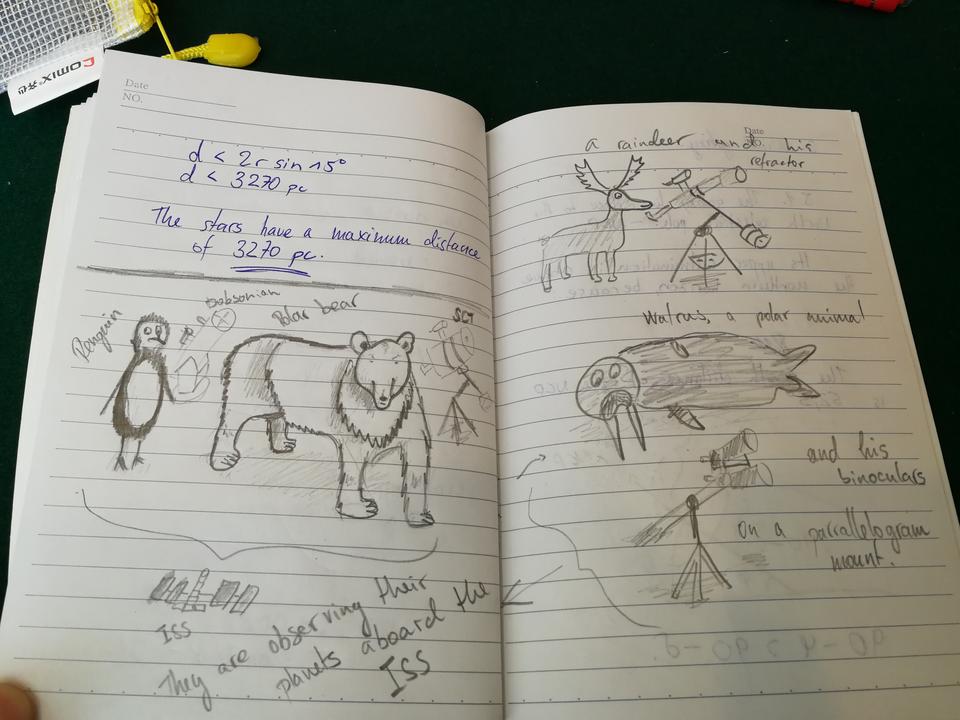 comix
Date
NO.
d < 2r sin 15°
d < 3270 pc
The stars have a maximum distance
of 3270 pc.
Penguin
Dobsonian
Polar bear
SCT
ISS
They are observing their
planets aboard the
ISS
Date
a raindeer und his
refractor
Walrus, a polar animal
and his
binoculars
on a parrallelogram
mount.